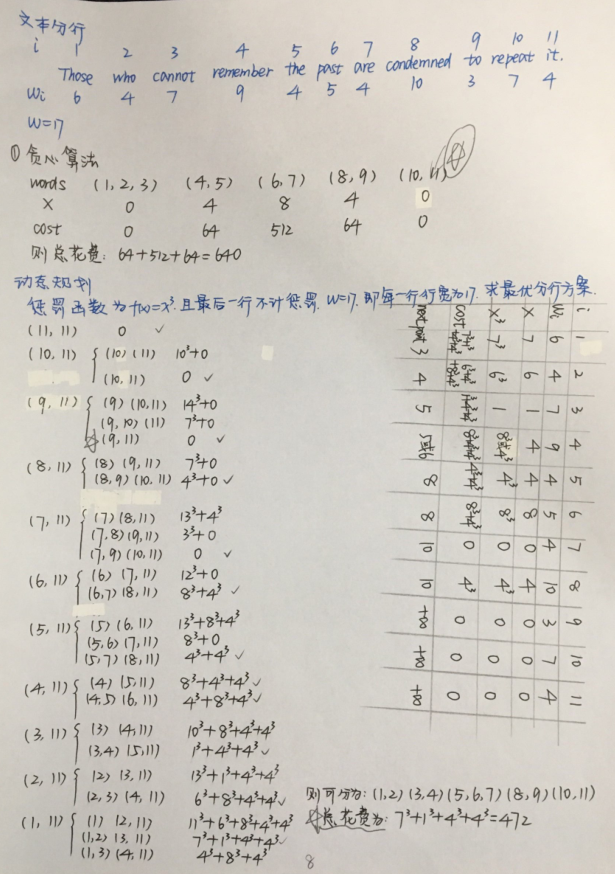 文本分行
i 1 2 3 4 5 6 7 8 9 10 11
Those who cannot remember the past are condemned to repeat it.
Wi 6 4 7 9 4 5 4 10 3 7 4
W=17
① 贪心算法
words (1,2,3) (4,5) (6,7) (8,9) (10,11)
X 0 4 8 4 0
cost 0 64 512 64 0
则总花费: 64+512+64=640
动态规划
惩罚函数为f(x)=x³.且最后一行不计惩罚. W=17.即每一行行宽为17.求最优分行方案.
(11,11) 0 ✓
(10,11) { (10)(11) 10³+0
(10,11) 0 ✓
(9,11) { (9)(10,11) 14³+0
(9,10)(11) 7³+0
(9,11) 0 ✓
(8,11) { (8)(9,11) 7³+0
(8,9)(10,11) 4³+0 ✓
(7,11) { (7)(8,11) 13³+4³
(7,8)(9,11) 3³+0
(7,9)(10,11) 0 ✓
(6,11) { (6)(7,11) 12³+0
(6,7)(8,11) 8³+4³ ✓
(5,11) { (5)(6,11) 13³+8³+4³
(5,6)(7,11) 8³+0
(5,7)(8,11) 4³+4³ ✓
(4,11) { (4)(5,11) 8³+4³+4³ ✓
(4,5)(6,11) 4³+8³+4³ ✓
(3,11) { (3)(4,11) 10³+8³+4³+4³
(3,4)(5,11) 1³+4³+4³ ✓
(2,11) { (2)(3,11) 13³+1³+4³+4³
(2,3)(4,11) 6³+8³+4³+4³ ✓
(1,11) { (1)(2,11) 11³+6³+8³+4³+4³
(1,2)(3,11) 7³+1³+4³+4³ ✓
(1,3)(4,11) 4³+8³+4³
i 1 2 3 4 5 6 7 8 9 10 11
Wi 6 4 7 9 4 5 4 10 3 7 4
X 7 6 1 4 4 8 0 4 0 0 0
X³ 7³ 6³ 1 8³或4³ 4³ 8³ 0 4³ 0 0 0
cost 0 4³ 0 0 0
next part 3 4 5 5或6 8 8 10 10 +∞ +∞ +∞
则可分为: (1,2)(3,4)(5,6,7)(8,9)(10,11)
总花费为: 7³+1³+4³+4³=472
8